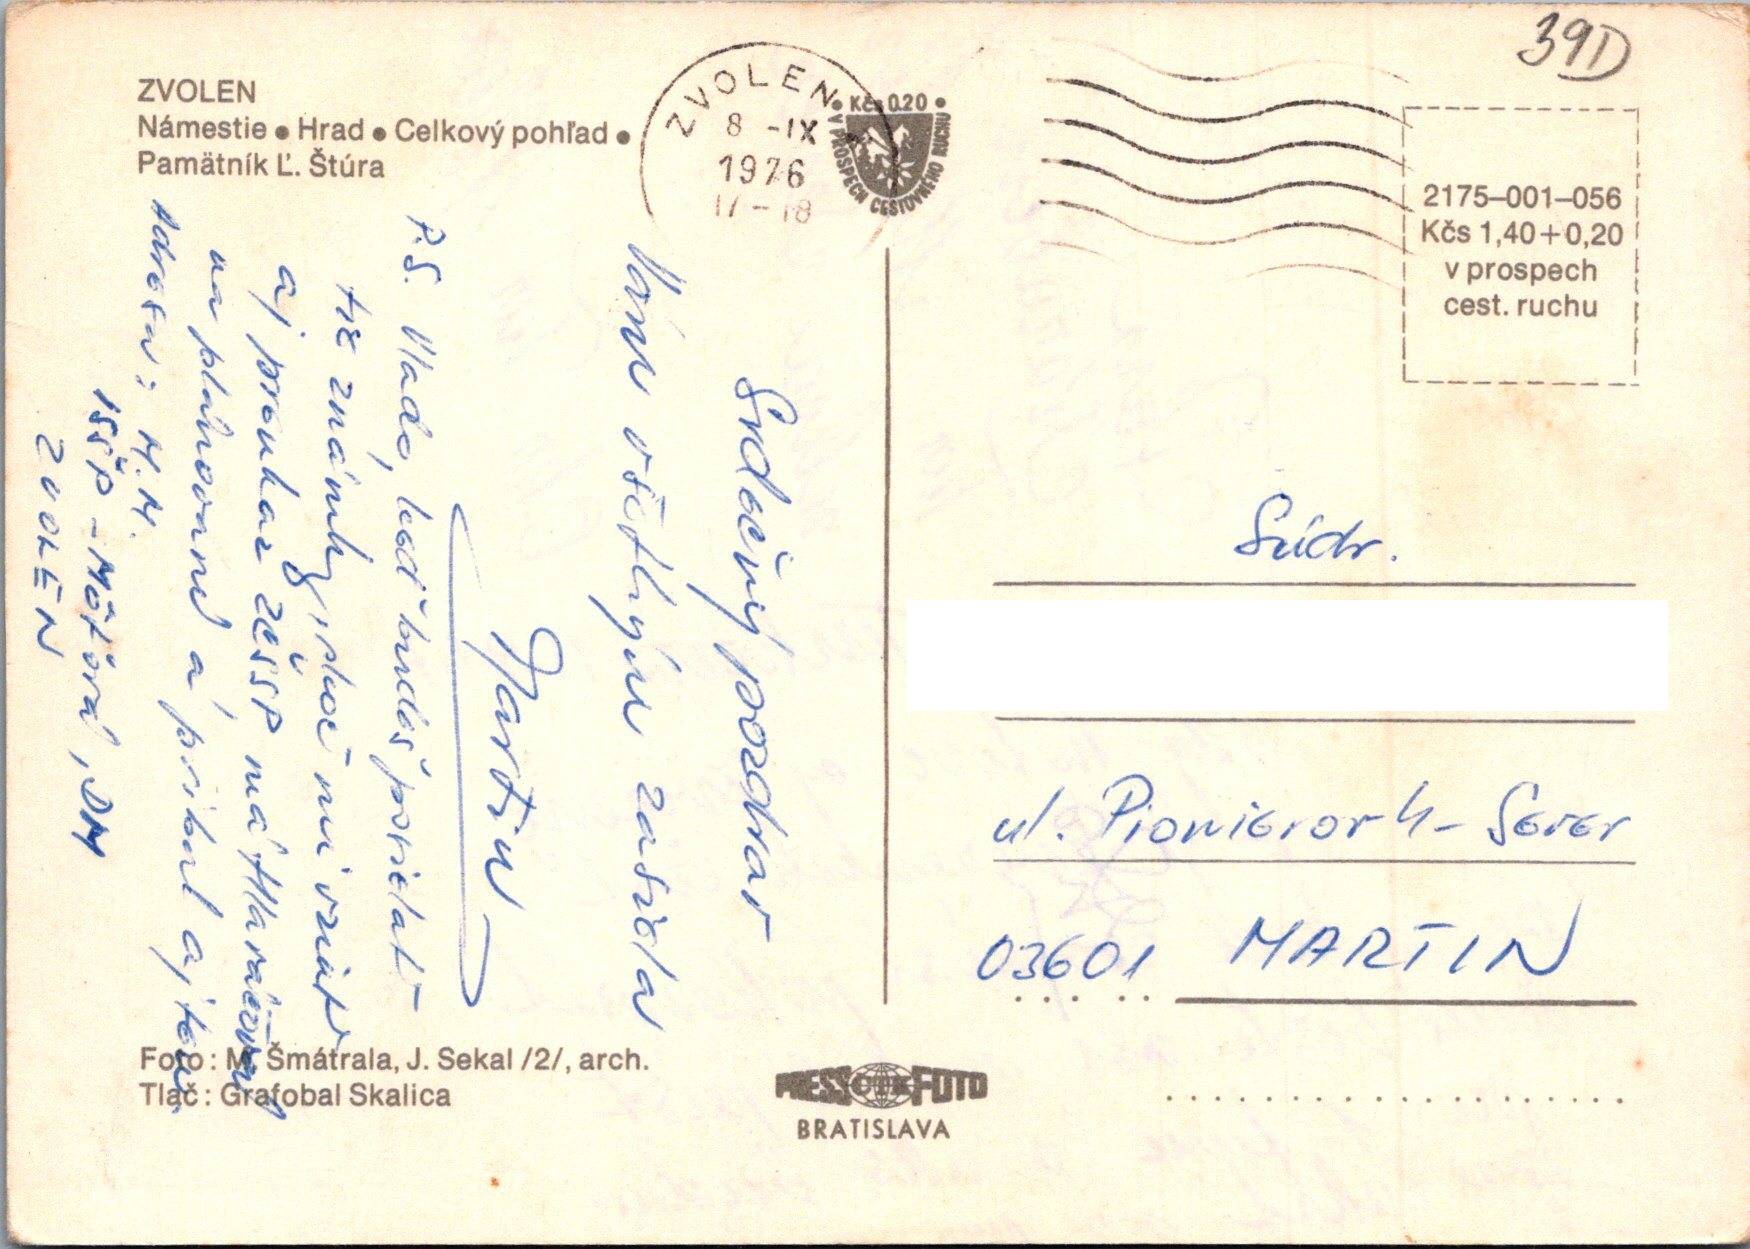 ZVOLEN
Námestie • Hrad • Celkový pohľad •
Pamätník Ľ. Štúra
ZVOLEN
8 -IX
1976
17-18
• Kčs 0.20 •
V PROSPECH CESTOVNÉHO RUCHU
39D
2175–001–056
Kčs 1,40+0,20
v prospech
cest. ruchu
Srdečný pozdrav
Vám všetkým zasiela
Martin
P.S. Vlado, keď budeš posielať
tie známky, tak mi
aj preukaz ZČSSP má Hlaváčová
na plánovaní a pribal aj ten
Adresa: M.M.
ISŠP - Môťová, DM
ZVOLEN
Súdr.
ul. Pionierov 4 - Sever
03601 MARTIN
Foto: M. Šmátrala, J. Sekal /2/, arch.
Tlač: Grafobal Skalica
PRESSFOTO
BRATISLAVA